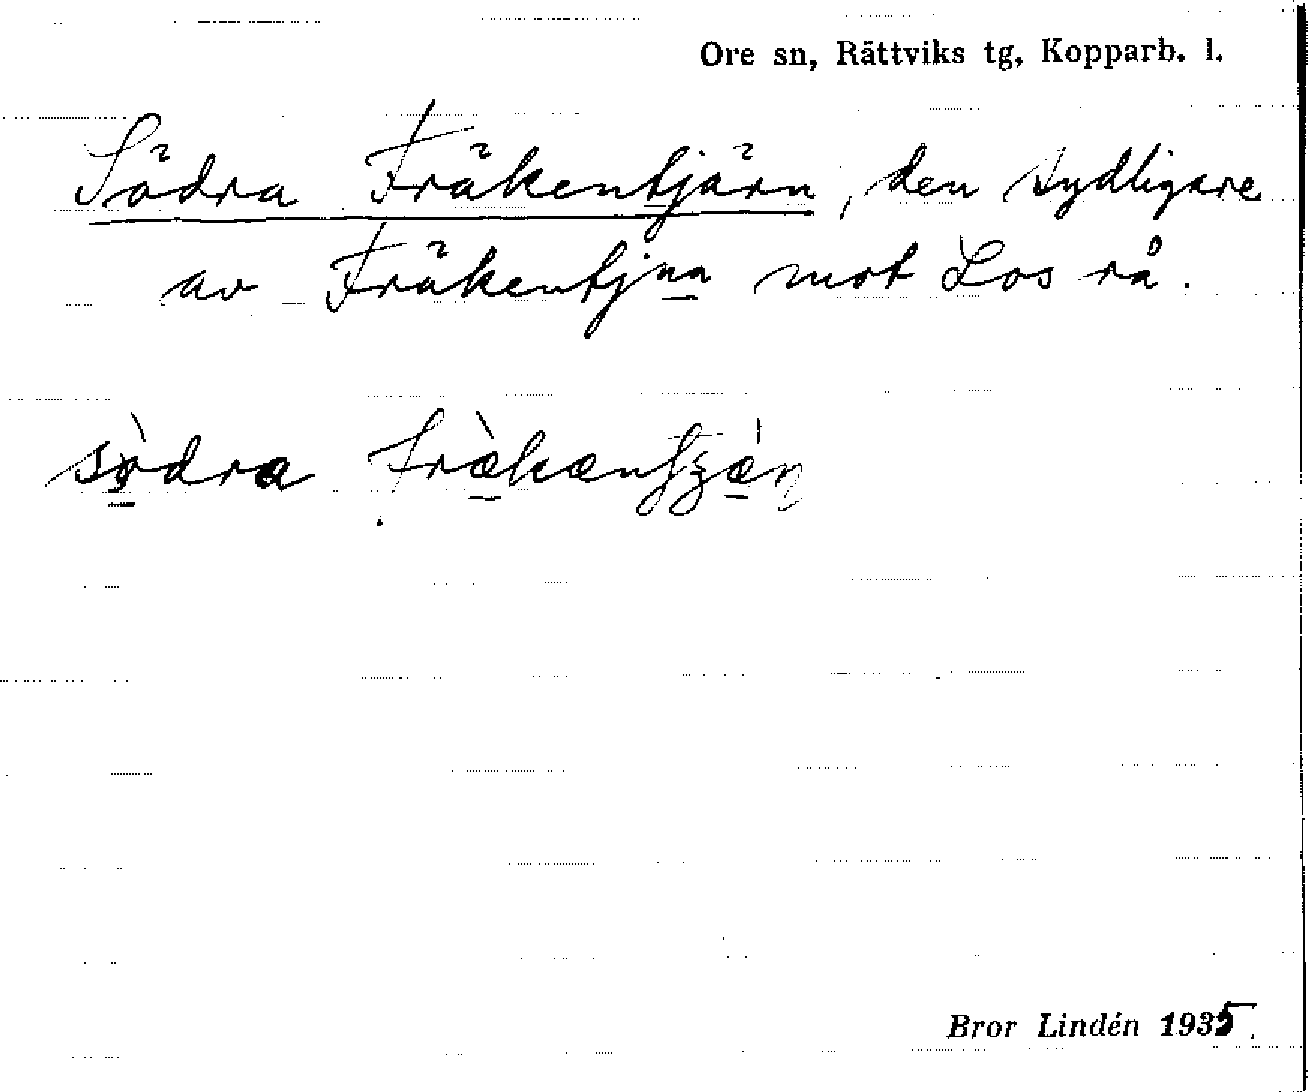 Ore sn, Rättviks tg, Kopparb. l.
Södra Fräkentjärn, den sydligare
av Fräkentjna mot Los rå.
södra
Bror Lindén 1935.